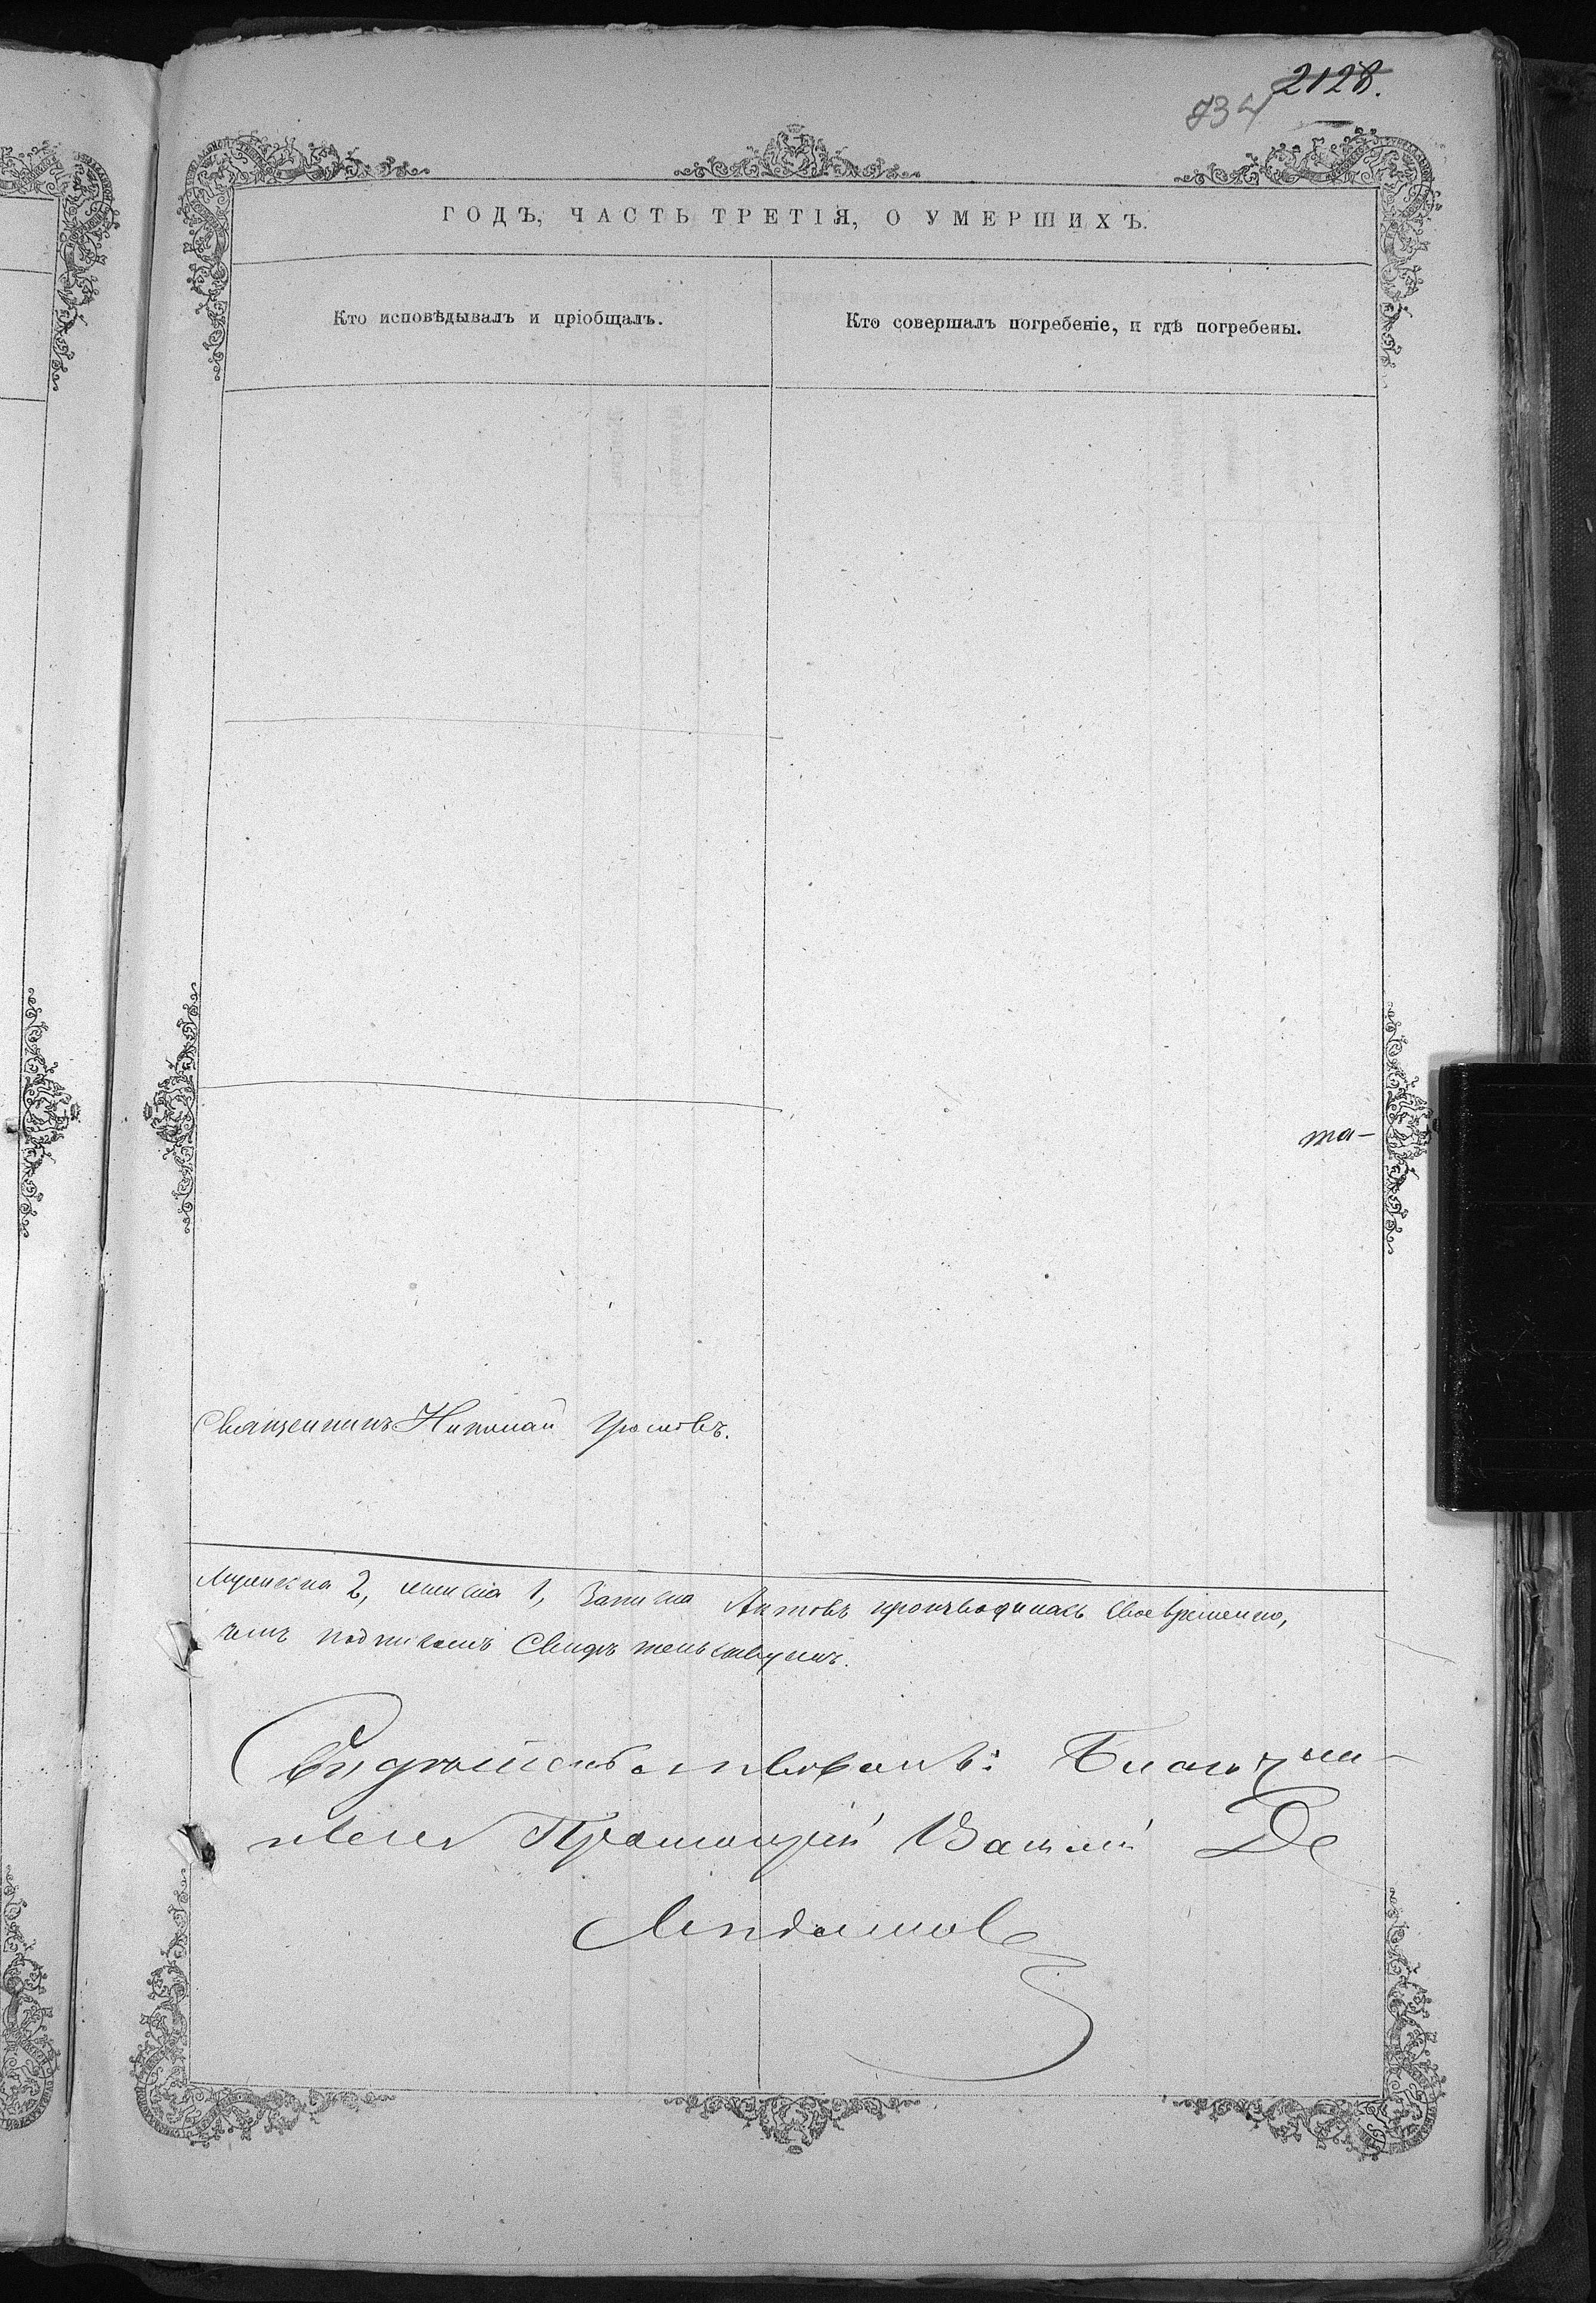 2128.
834
ГОДЪ, ЧАСТЬ ТРЕТІЯ, О УМЕРШИХЪ.
Кто исповѣдывалъ и пріобщалъ.
Кто совершалъ погребеніе, и гдѣ погребены.
та-
Священникъ Николай
2, 1, Записка Актовъ производилась Своевременно,
чемъ подписомъ Свидѣтельствуемъ.
Свидѣтельствовалъ: Благочин-
Протоіерей Василій